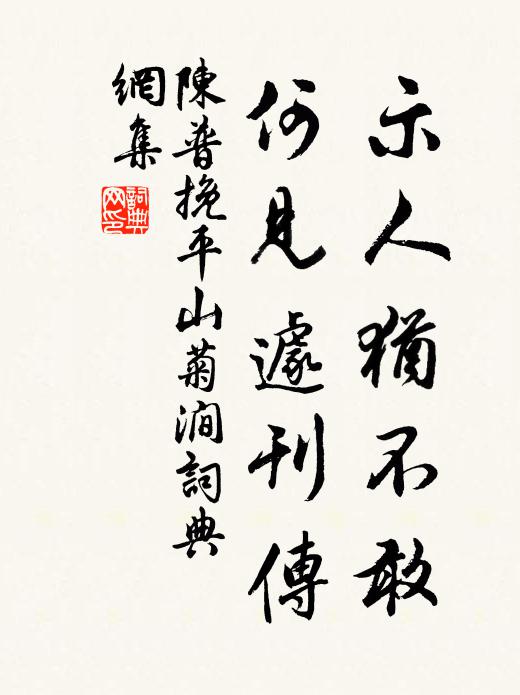 示人猶不敢
何見遽刊傳
陳普挽平山菊澗詞典
網集
詞典
网印